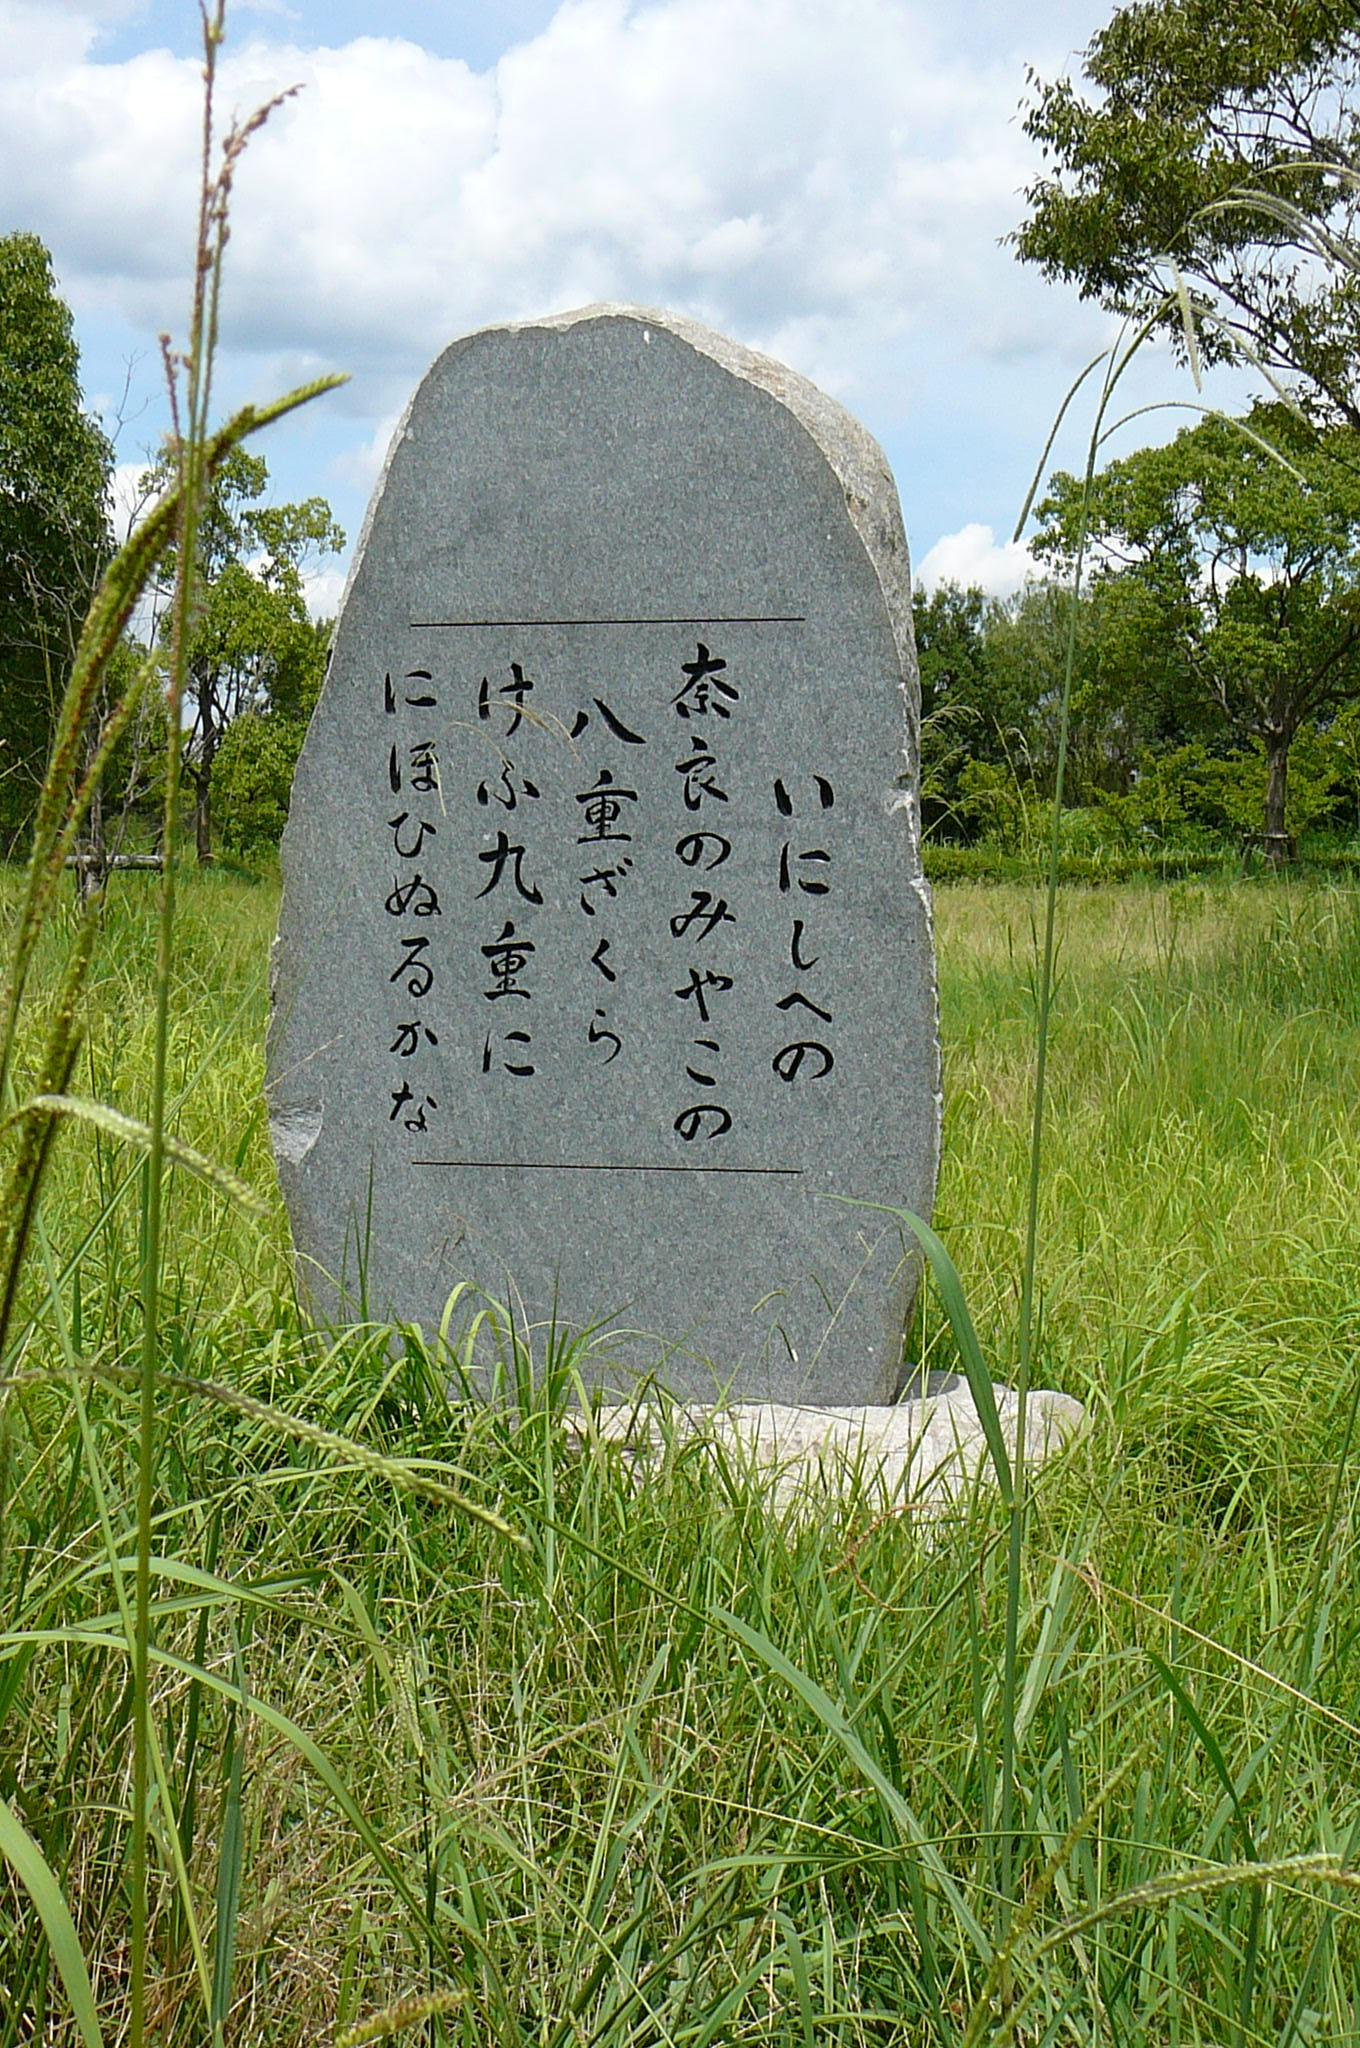 いにしへの
奈良のみやこの
八重ざくら
けふ九重に
にほひぬるかな